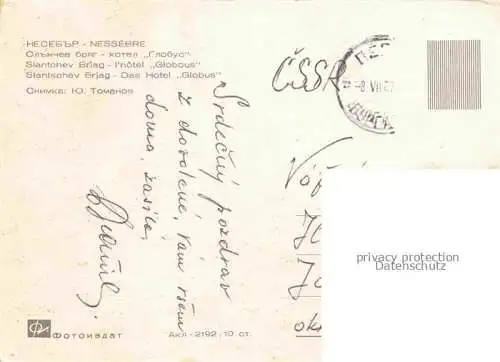 НЕСЕБЪР - NESSÉBRE
Слънчев бряг - хотел „Глобус“
Slantchev Briag - l'hôtel „Globous“
Slantschev Brjag - Das Hotel „Globus“
Снимка: Ю. Томанов
ČSSR
Srdečný pozdrav
z dovolené, Vám všem
doma, zasílá,
privacy protection
Datenschutz
Фотоиздат
Акл - 2192; 10 ст.